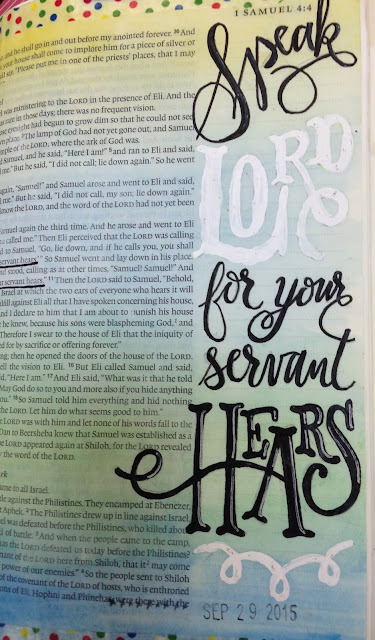 1 SAMUEL 4:4
and he shall go in and out before my anointed forever. 36 And
your house shall come to implore him for a piece of silver or
"Please put me in one of the priests' places, that I may
was ministering to the LORD in the presence of Eli. And the
rare in those days; there was no frequent vision.
had begun to grow dim so that he could not see
place. 3 The lamp of God had not yet gone out, and Samuel
temple of the LORD, where the ark of God was.
Samuel, and he said, "Here I am!" 5 and ran to Eli and said,
me." But he said, "I did not call; lie down again." So he went
again, "Samuel!" and Samuel arose and went to Eli and said,
me." But he said, "I did not call, my son; lie down again."
know the LORD, and the word of the LORD had not yet been
Samuel again the third time. And he arose and went to Eli
called me." Then Eli perceived that the LORD was calling
to Samuel, "Go, lie down, and if he calls you, you shall
servant hears.'" So Samuel went and lay down in his place.
stood, calling as at other times, "Samuel! Samuel!" And
servant hears." 11 Then the LORD said to Samuel, "Behold,
Israel at which the two ears of everyone who hears it will
fulfill against Eli all that I have spoken concerning his house,
and I declare to him that I am about to punish his house
he knew, because his sons were blaspheming God, and
Therefore I swear to the house of Eli that the iniquity of
for by sacrifice or offering forever."
then he opened the doors of the house of the LORD.
tell the vision to Eli. 16 But Eli called Samuel and said,
said, "Here I am." 17 And Eli said, "What was it that he told
May God do so to you and more also if you hide anything
you." 18 So Samuel told him everything and hid nothing
the LORD. Let him do what seems good to him."
LORD was with him and let none of his words fall to the
Dan to Beersheba knew that Samuel was established as a
the LORD appeared again at Shiloh, for the LORD revealed
by the word of the LORD.
came to all Israel.
against the Philistines. They encamped at Ebenezer,
at Aphek. 2 The Philistines drew up in line against Israel,
Israel was defeated before the Philistines, who killed about
of battle. 3 And when the people came to the camp,
has the LORD defeated us today before the Philistines?
covenant of the LORD here from Shiloh, that it may come
power of our enemies." 4 So the people sent to Shiloh
of the covenant of the LORD of hosts, who is enthroned
sons of Eli, Hophni and Phinehas, were there with the
Speak
LORD
for your
servant
HEARS
SEP 29 2015